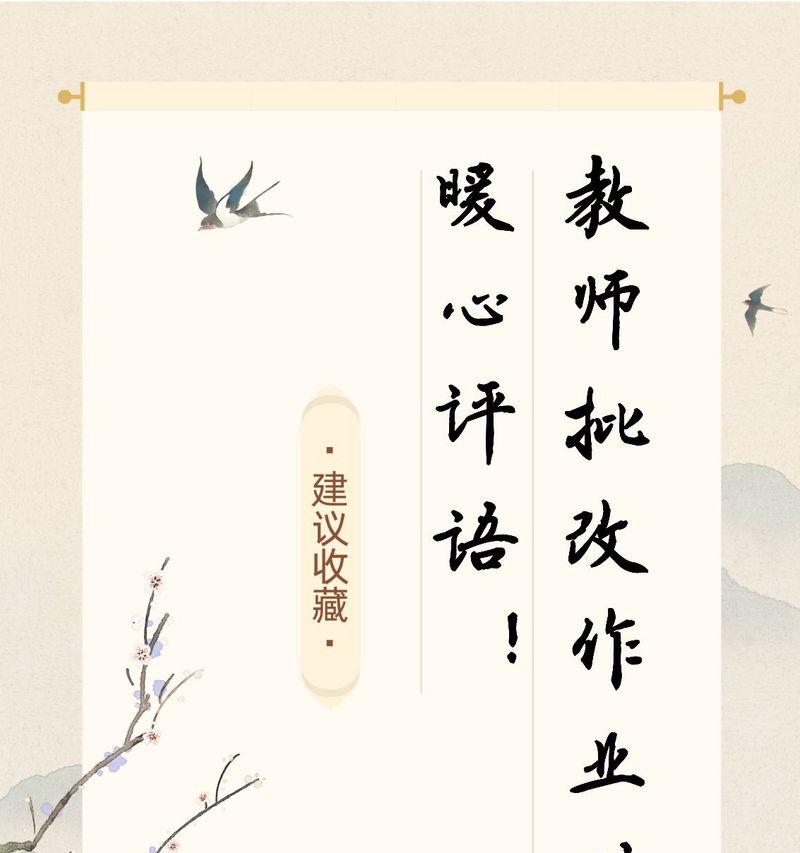 教师批改作业
暖心评语！
·建议收藏·